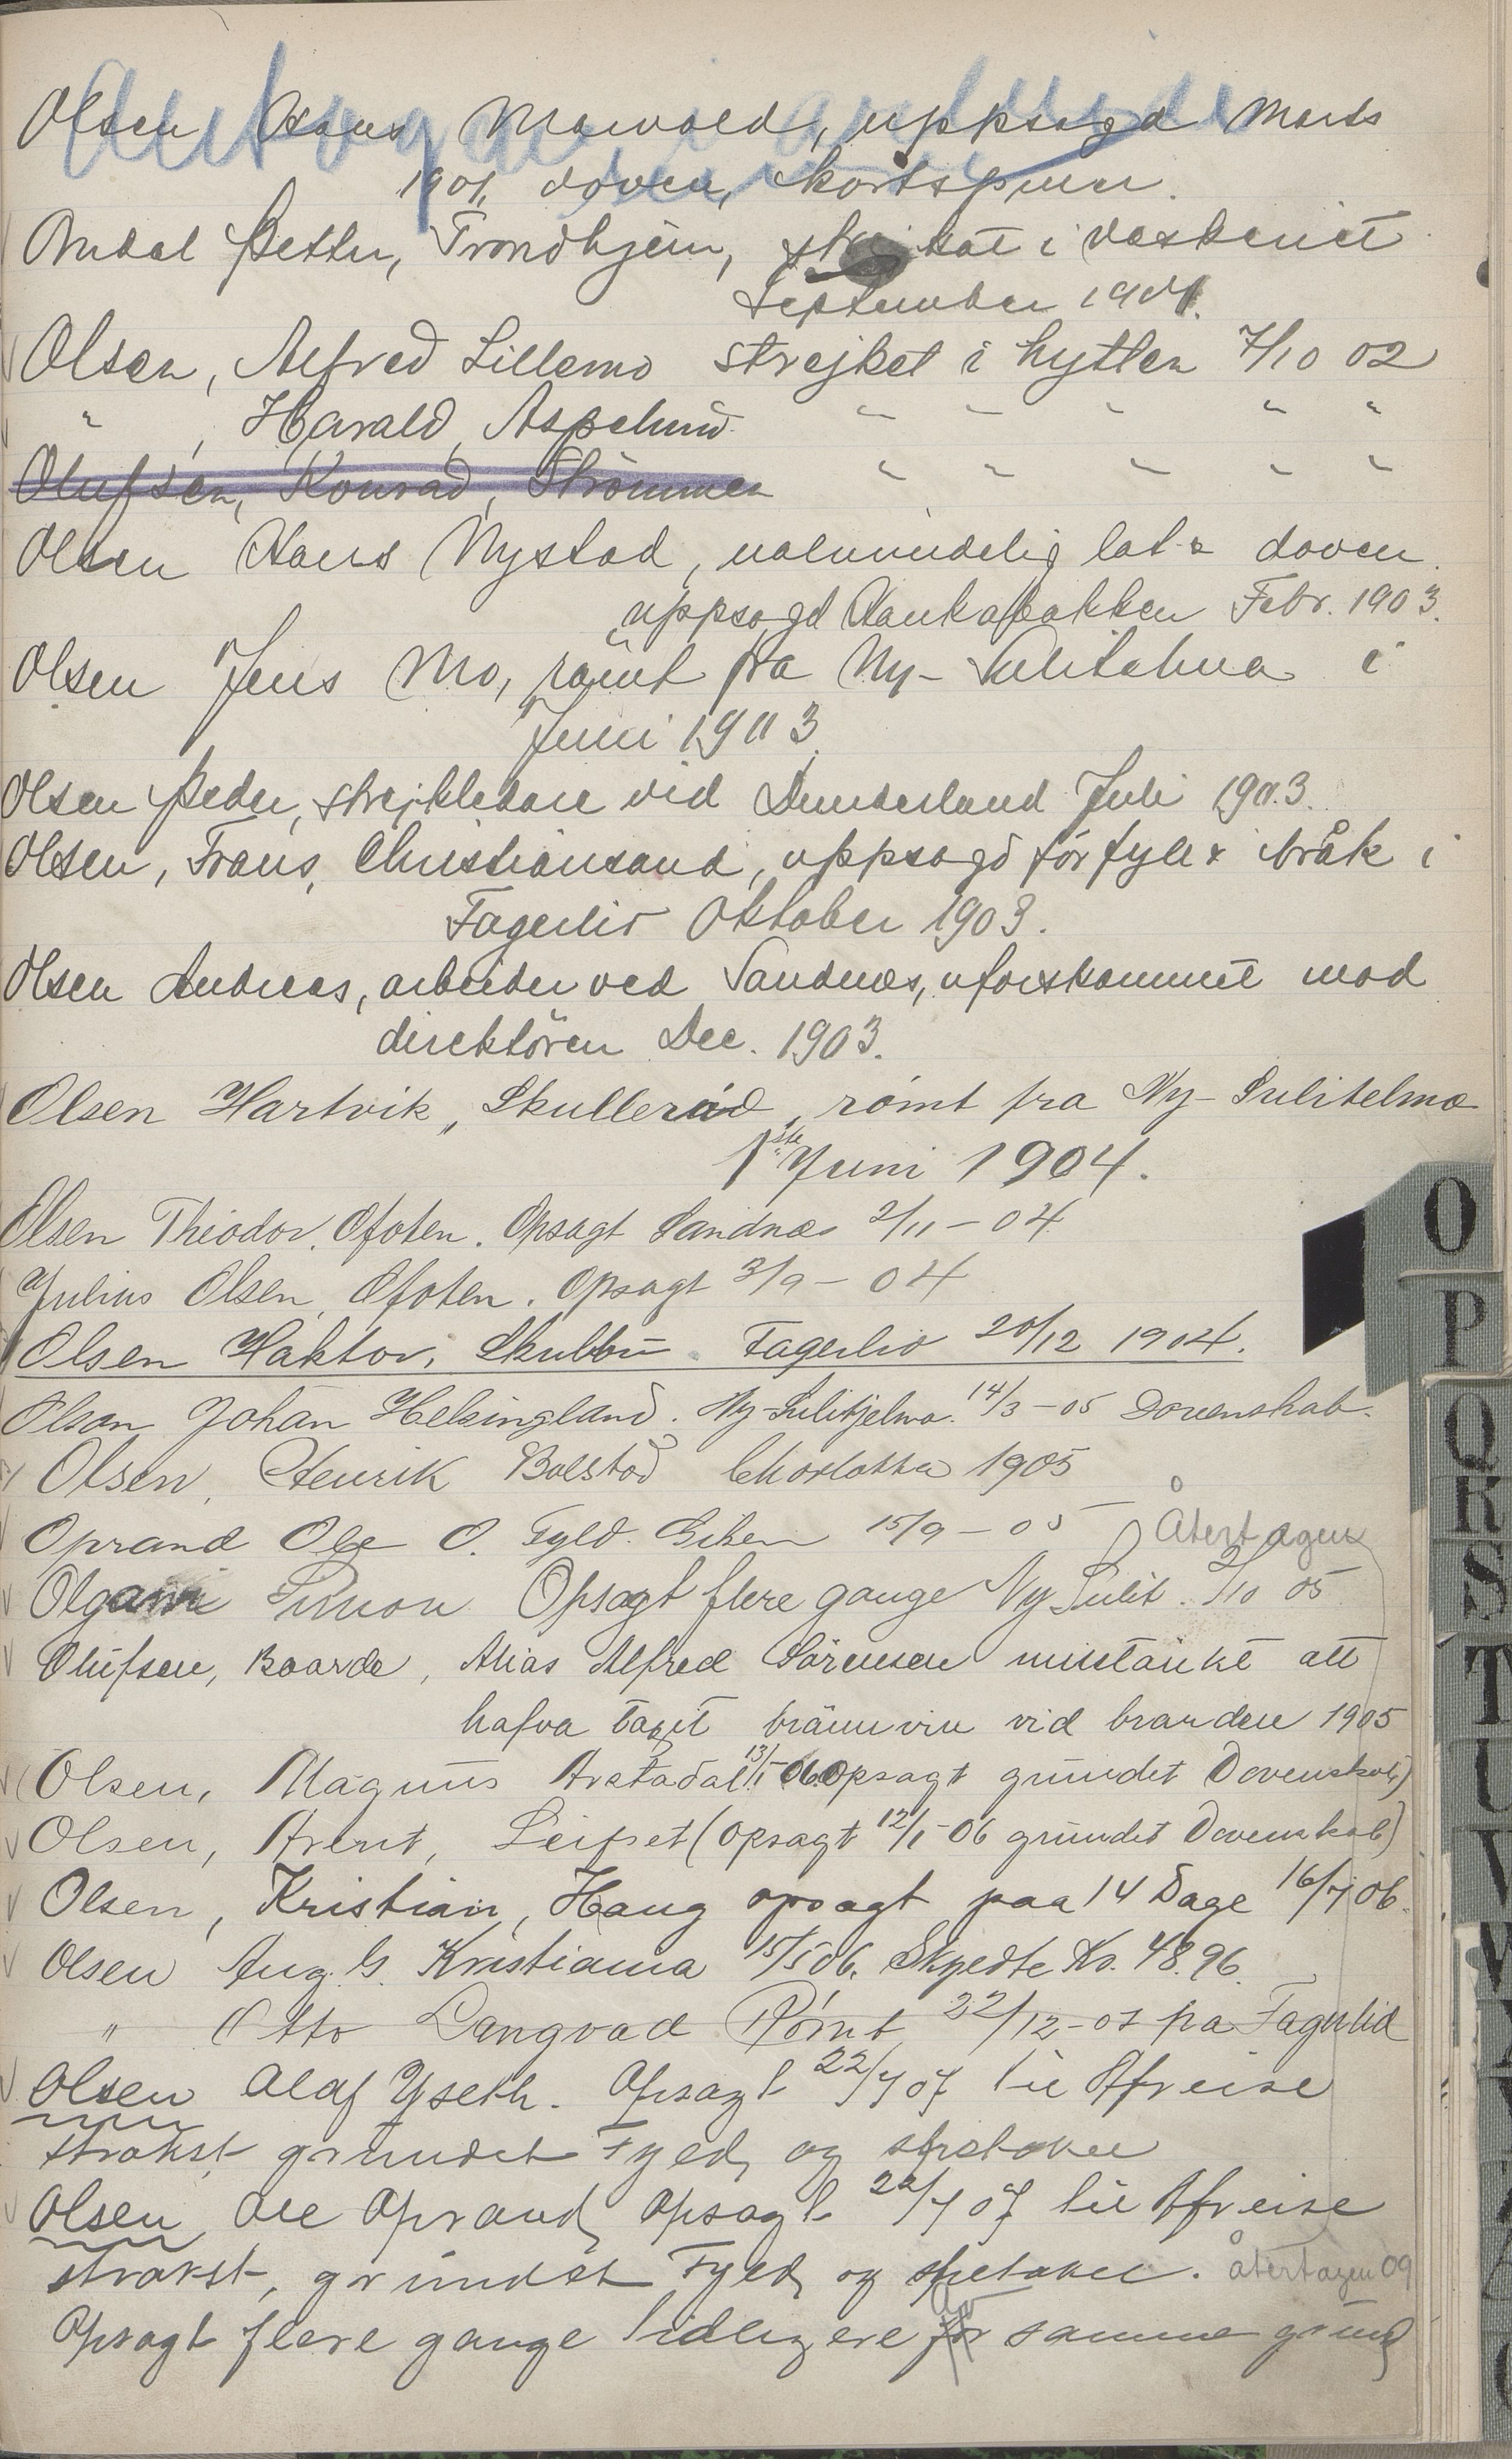 Olsen Hans Morvold, uppsagd Marts
1901, doven, kortspiller.
Omdal Petter, Trondhjem, strejkat i vaskeriet
September 1901.
Olsen, Alfred Lillemo strejket i hytten 7/10 02
" , Harald, Aspelund " " " " "
Olufsen, Konrad, Strömmen " " " " "
Olsen Hans Nystad, ualmindelig lat & doven.
uppsagd Hankabakken Febr. 1903.
Olsen Jens Mo, römt fra Ny-Sulitelma i
Juni 1903.
Olsen Peder, strejkledare vid Dunderland Juli 1903.
Olsen, Frans, Christiansand, uppsagd för fyll & bråk i
Fagerlid Oktober 1903.
Olsen Andreas, arbeider ved Sandnæs, uforskammet mod
direktören Dec. 1903.
Olsen Hartvik, Skulleråd, römt fra Ny-Sulitelma
1ste Juni 1904.
Olsen Theodor, Ofoten. Opsagt Sandnæs 2/11-04
Julius Olsen, Ofoten. Opsagt 3/9-04
Olsen Haktor, Skubbu. Fagerlid 20/12 1904.
Olsen Johan Helsingland. Ny-Sulitjelma. 14/3-05 Dovenskab.
Olsen, Henrik Bolstad Charlotta 1905
Oprand Ole O. Fyld. 15/9-05 Återtagen
Simon Opsagt flere gange Ny Sulit. 2/10 05
Olufsen, Baarde, Alias Alfred Sörensen misstänkt att
hafva tagit brännvin vid branden 1905
Olsen, Magnus Arstadal 13/1 06 (Opsagt grundet Dovenskab)
Olsen, Arent, Leifset (opsagt 12/1-06 grundet Dovenskab)
Olsen, Kristian, Haug opsagt paa 14 Dage 16/7 06.
Olsen Aug. G. Kristiania 15/5 06. Skyldte Kr. 48.96.
" Otto Langvad Römt 22/12-07 fra Fagerlid
Olsen Olaf Yseth. Opsagt 22/7 07 til Afreise
strakst grundet Fyld og spetakel
Olsen, Ole Oprand, Opsagt 22/7 07 til Afreise
strakst, grundet Fyld og spetakel. återtagen 09
Opsagt flere gange tidligere for samme grund
O
P
Q
R
S
T
U
V
W